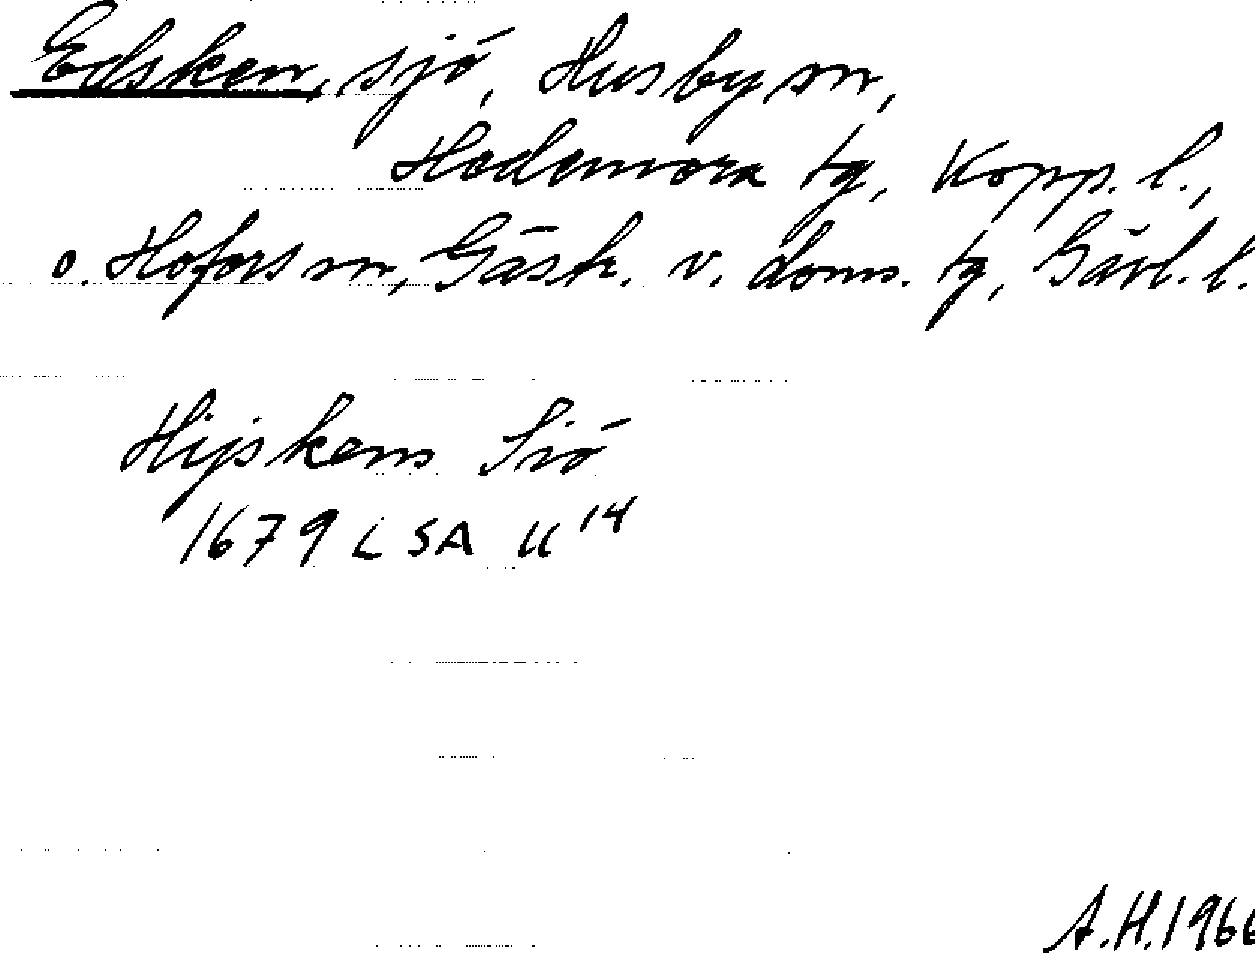 Edsken, sjö, Husby sn,
Hedemora tg, Kopp. l.,
o. Hofors sn, Gästr. v. doms. tg, Gävl. l.
Hijskens Siö
1679 LSA U14
A.H. 1966